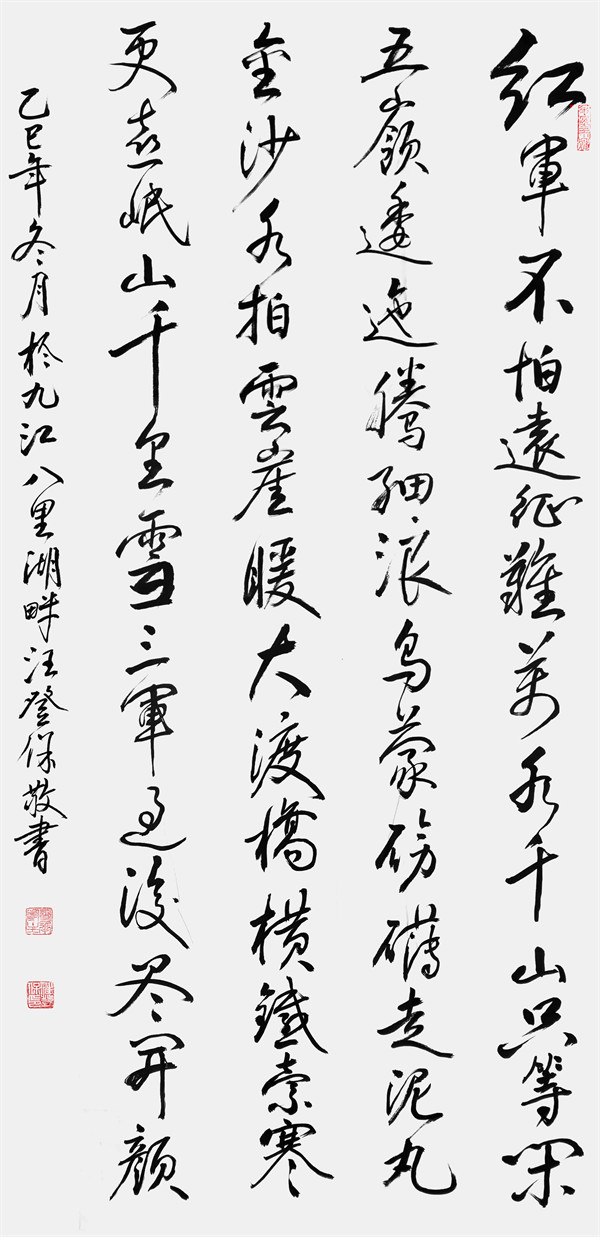 红軍不怕遠征難萬水千山只等閑
五嶺逶迤騰細浪烏蒙磅礴走泥丸
金沙水拍雲崖暖大渡橋橫鐵索寒
更喜岷山千里雪三軍過後盡开顔
乙巳年冬月於九江八里湖畔汪登保敬書